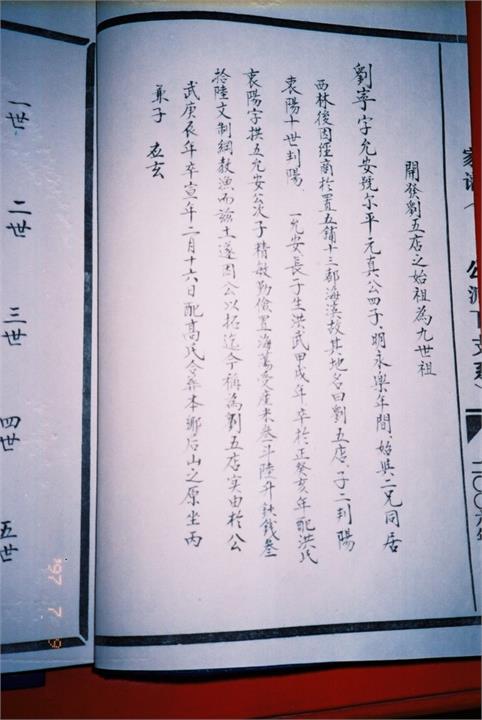 開發劉五店之始祖為九世祖
劉寧字允安號尔平元真公四子、明永樂年間、始與二兄同居
西林後因經商於置五舖十三都海濱故其地名曰劉五店、子二判陽
衷陽十世判陽、一允安長子生洪武甲戌年卒於正癸亥年配洪氏
衷陽字拱五允安公次子精敏勤儉置海蕩受產米叁斗陸升鈇錢叁
拾陸文制綱敎漁而茲土遂因公以拓迄今稱為劉五店实由於公
武庚辰年卒宣年二月十六日配高氏合葬本鄉石山之原坐丙
兼子 玄
家譜
二〇〇六年
一世 二世 三世 四世 五世
'97 7 9